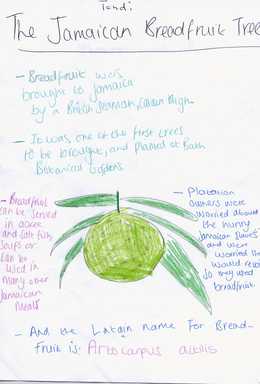 The Jamaican Breadfruit Tree
- Breadfruit was
brought to Jamaica
by a British Seaman, Captain Bligh.
- It was, one of the first trees
to be brought, and planted at Bath
Botanical Gardens.
- Breadfruit
can be served
in ackee
and salt fish,
soups or
can be
used in
many other
Jamaican
Meals
- Plantation
owners were
worried about
the hungry
Jamaican slaves
and were
worried they
would rebel
so they used
breadfruit.
- And the Latain name For Bread-
fruit is: Artocarpus